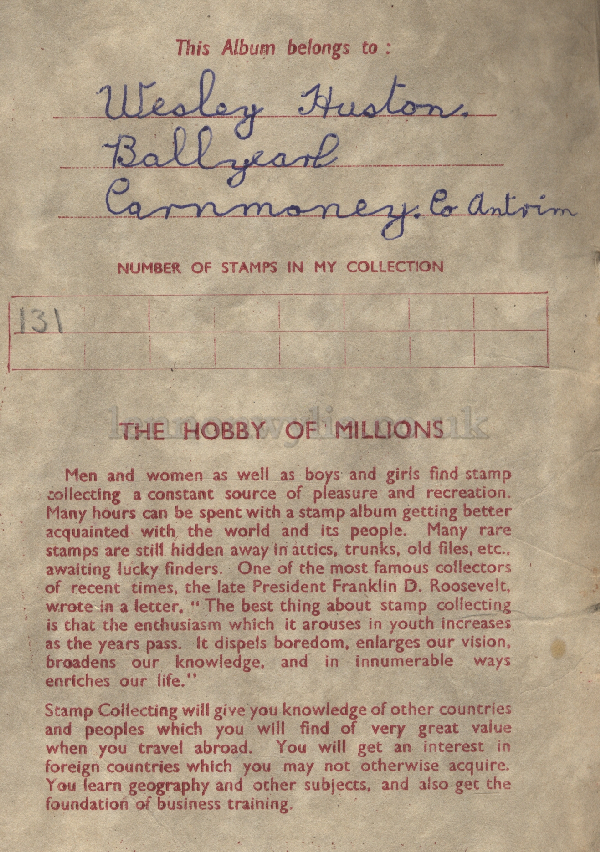 This Album belongs to :
Wesley Huston.
Ballyearl
Carnmoney. Co Antrim
NUMBER OF STAMPS IN MY COLLECTION
131
THE HOBBY OF MILLIONS
Men and women as well as boys and girls find stamp
collecting a constant source of pleasure and recreation.
Many hours can be spent with a stamp album getting better
acquainted with the world and its people. Many rare
stamps are still hidden away in attics, trunks, old files, etc.,
awaiting lucky finders. One of the most famous collectors
of recent times, the late President Franklin D. Roosevelt,
wrote in a letter, " The best thing about stamp collecting
is that the enthusiasm which it arouses in youth increases
as the years pass. It dispels boredom, enlarges our vision,
broadens our knowledge, and in innumerable ways
enriches our life."
Stamp Collecting will give you knowledge of other countries
and peoples which you will find of very great value
when you travel abroad. You will get an interest in
foreign countries which you may not otherwise acquire.
You learn geography and other subjects, and also get the
foundation of business training.